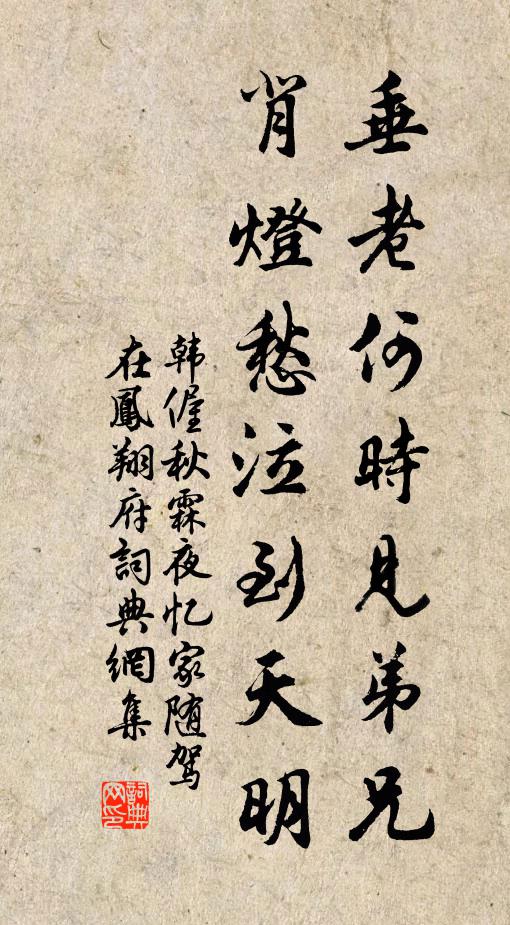 垂老何時見弟兄
背燈愁泣到天明
韩偓秋霖夜忆家随驾
在鳳翔府詞典網集
詞典网印